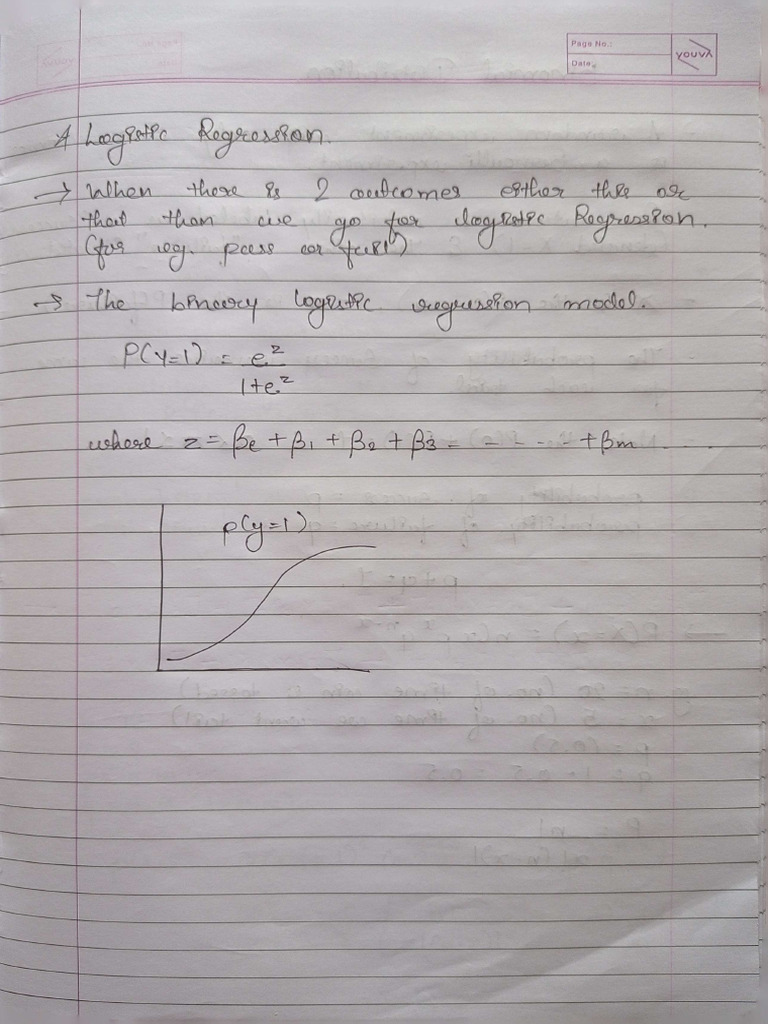 Page No.:
Date.
YOUVA
* Logistic Regression.
→ When there is 2 outcomes either this or
that than we go for logistic Regression.
(for eg. pass or fail)
→ The binary logistic regression model.
P(Y=1) = e^z
1+e^z
where z = βe + β1 + β2 + β3 - - - - - + βm
p(y=1)